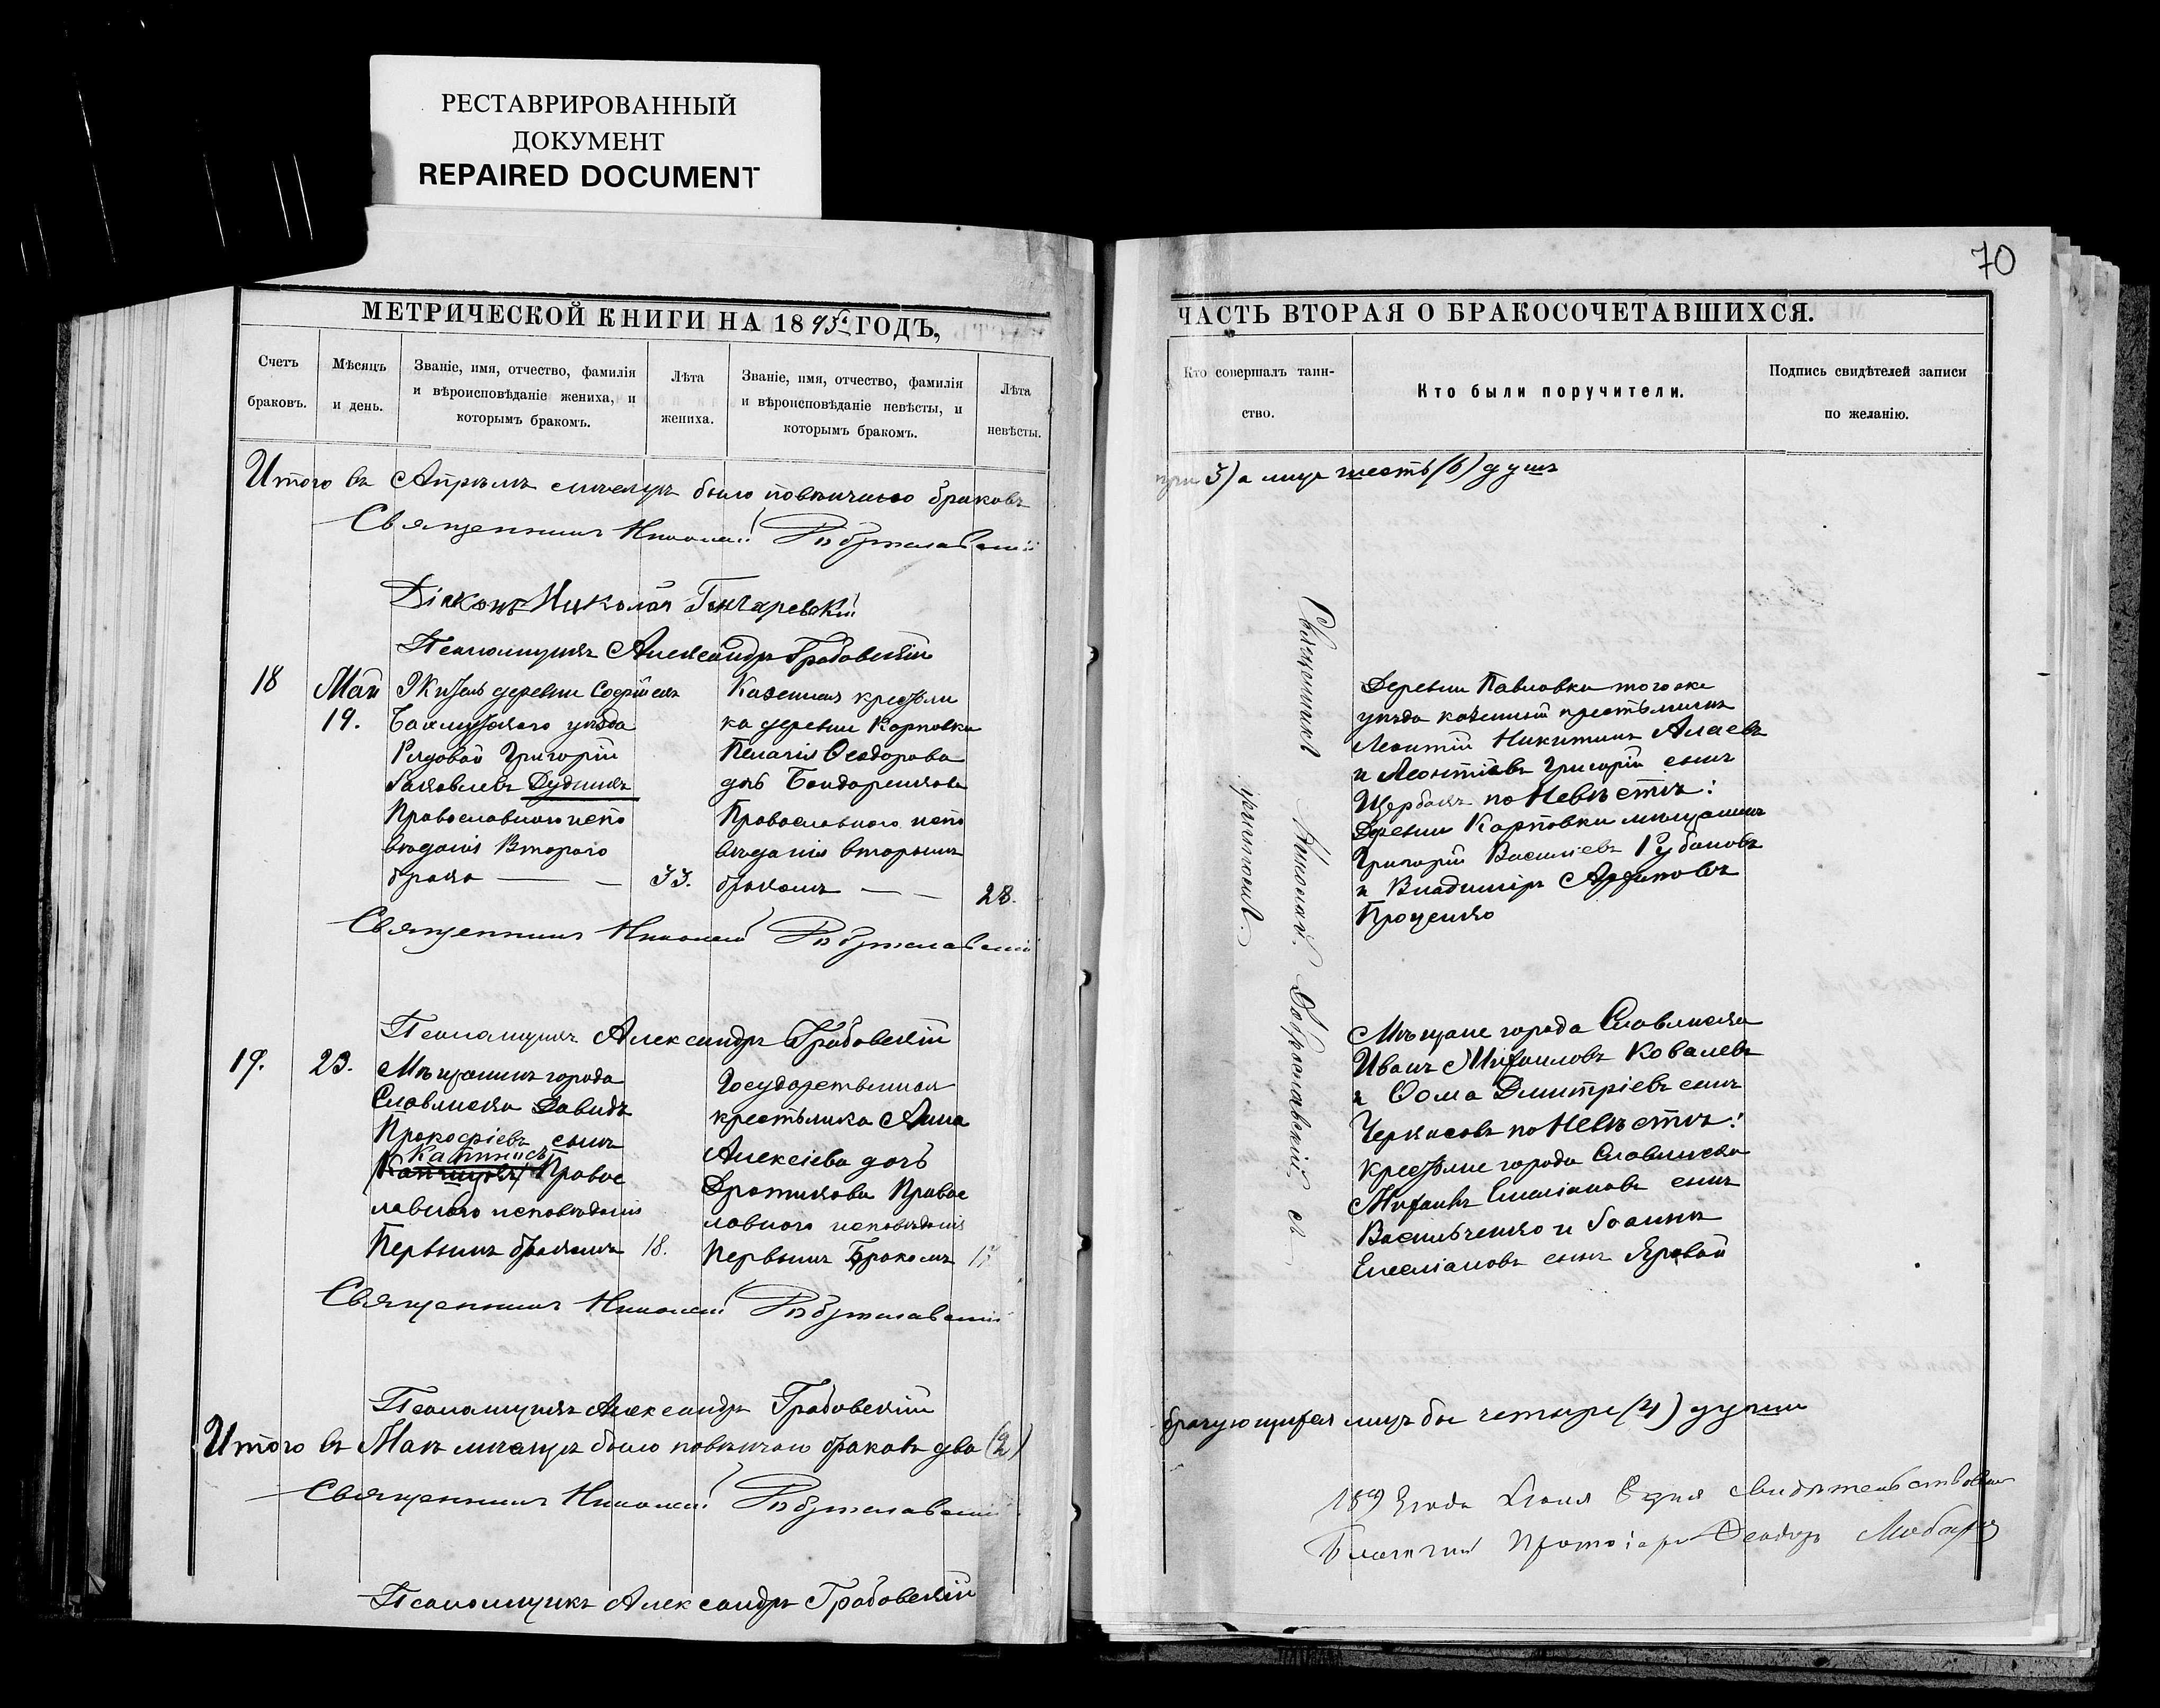 РЕСТАВРИРОВАННЫЙ
ДОКУМЕНТ
REPAIRED DOCUMENT
70
МЕТРИЧЕСКОЙ КНИГИ НА 1895 ГОДЪ,
Счетъ
браковъ.
Мѣсяцъ
и день.
Званіе, имя, отчество, фамилія
и вѣроисповѣданіе жениха, и
которымъ бракомъ.
Лѣта
жениха.
Званіе, имя, отчество, фамилія
и вѣроисповѣданіе невѣсты, и
которымъ бракомъ.
Лѣта
невѣсты.
Итого въ Апрѣлѣ мѣсяцѣ было повѣнчано браковъ
Священникъ Николай
Діаконъ Николай Гончаревскій
Псаломщикъ Александръ Грабовскій
18
Май
19.
Житель деревни
Бахмутскаго уѣзда
Рядовой Григорій
Яковлевъ Дудникъ
Православнаго испо
вѣданія Второго
брака
33.
Казенная крестьян
ка деревни Карповки
Пелагія Ѳеодорова
дочь Бондаренкова
Православнаго испо
вѣданія вторымъ
бракомъ
28.
Священникъ Николай
Псаломщикъ Александръ Грабовскій
19.
23.
Мѣщанинъ города
Славянска Давидъ
Прокофіевъ сынъ
Православнаго исповѣданія
Первымъ бракомъ
18.
Государственная
крестьянка Анна
Алексіева дочь
Православнаго исповѣданія
Первымъ Бракомъ
Священникъ Николай
Псаломщикъ Александръ Грабовскій
Итого въ Маѣ мѣсяцѣ было повѣнчано браковъ два (2)
Священникъ Николай
Псаломщикъ Александръ Грабовскій
ЧАСТЬ ВТОРАЯ О БРАКОСОЧЕТАВШИХСЯ.
Кто совершалъ таин-
ство.
Кто были поручители.
Подпись свидѣтелей записи
по желанію.
три 3) а лицъ шесть (6) душъ
Священникъ Николай съ
причтомъ.
Деревни Павловки тогоже
уѣзда казенный крестьянинъ
Леонтій Никитинъ
и Леонтіевъ Григорій сынъ
Щербакъ по Невѣстѣ:
Деревни Карповки мѣщанинъ
Григорій Василіевъ Рубановъ
и Владиміръ
Проценко
Мѣщане города Славянска
Иванъ Михаиловъ Ковалевъ
и Ѳома Дмитріевъ сынъ
Черкасовъ по Невѣстѣ:
крестьяне города Славянска
Михаилъ Емеліановъ сынъ
Васильченко и Іоаннъ
Емеліановъ сынъ Яровой
брачующихся лицъ бы четыре (4) души
года дня свидѣтельствовалъ
Благочинный Протоіерей Ѳеодоръ